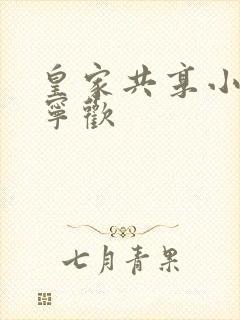 皇家共享小
寧歡
七月青果